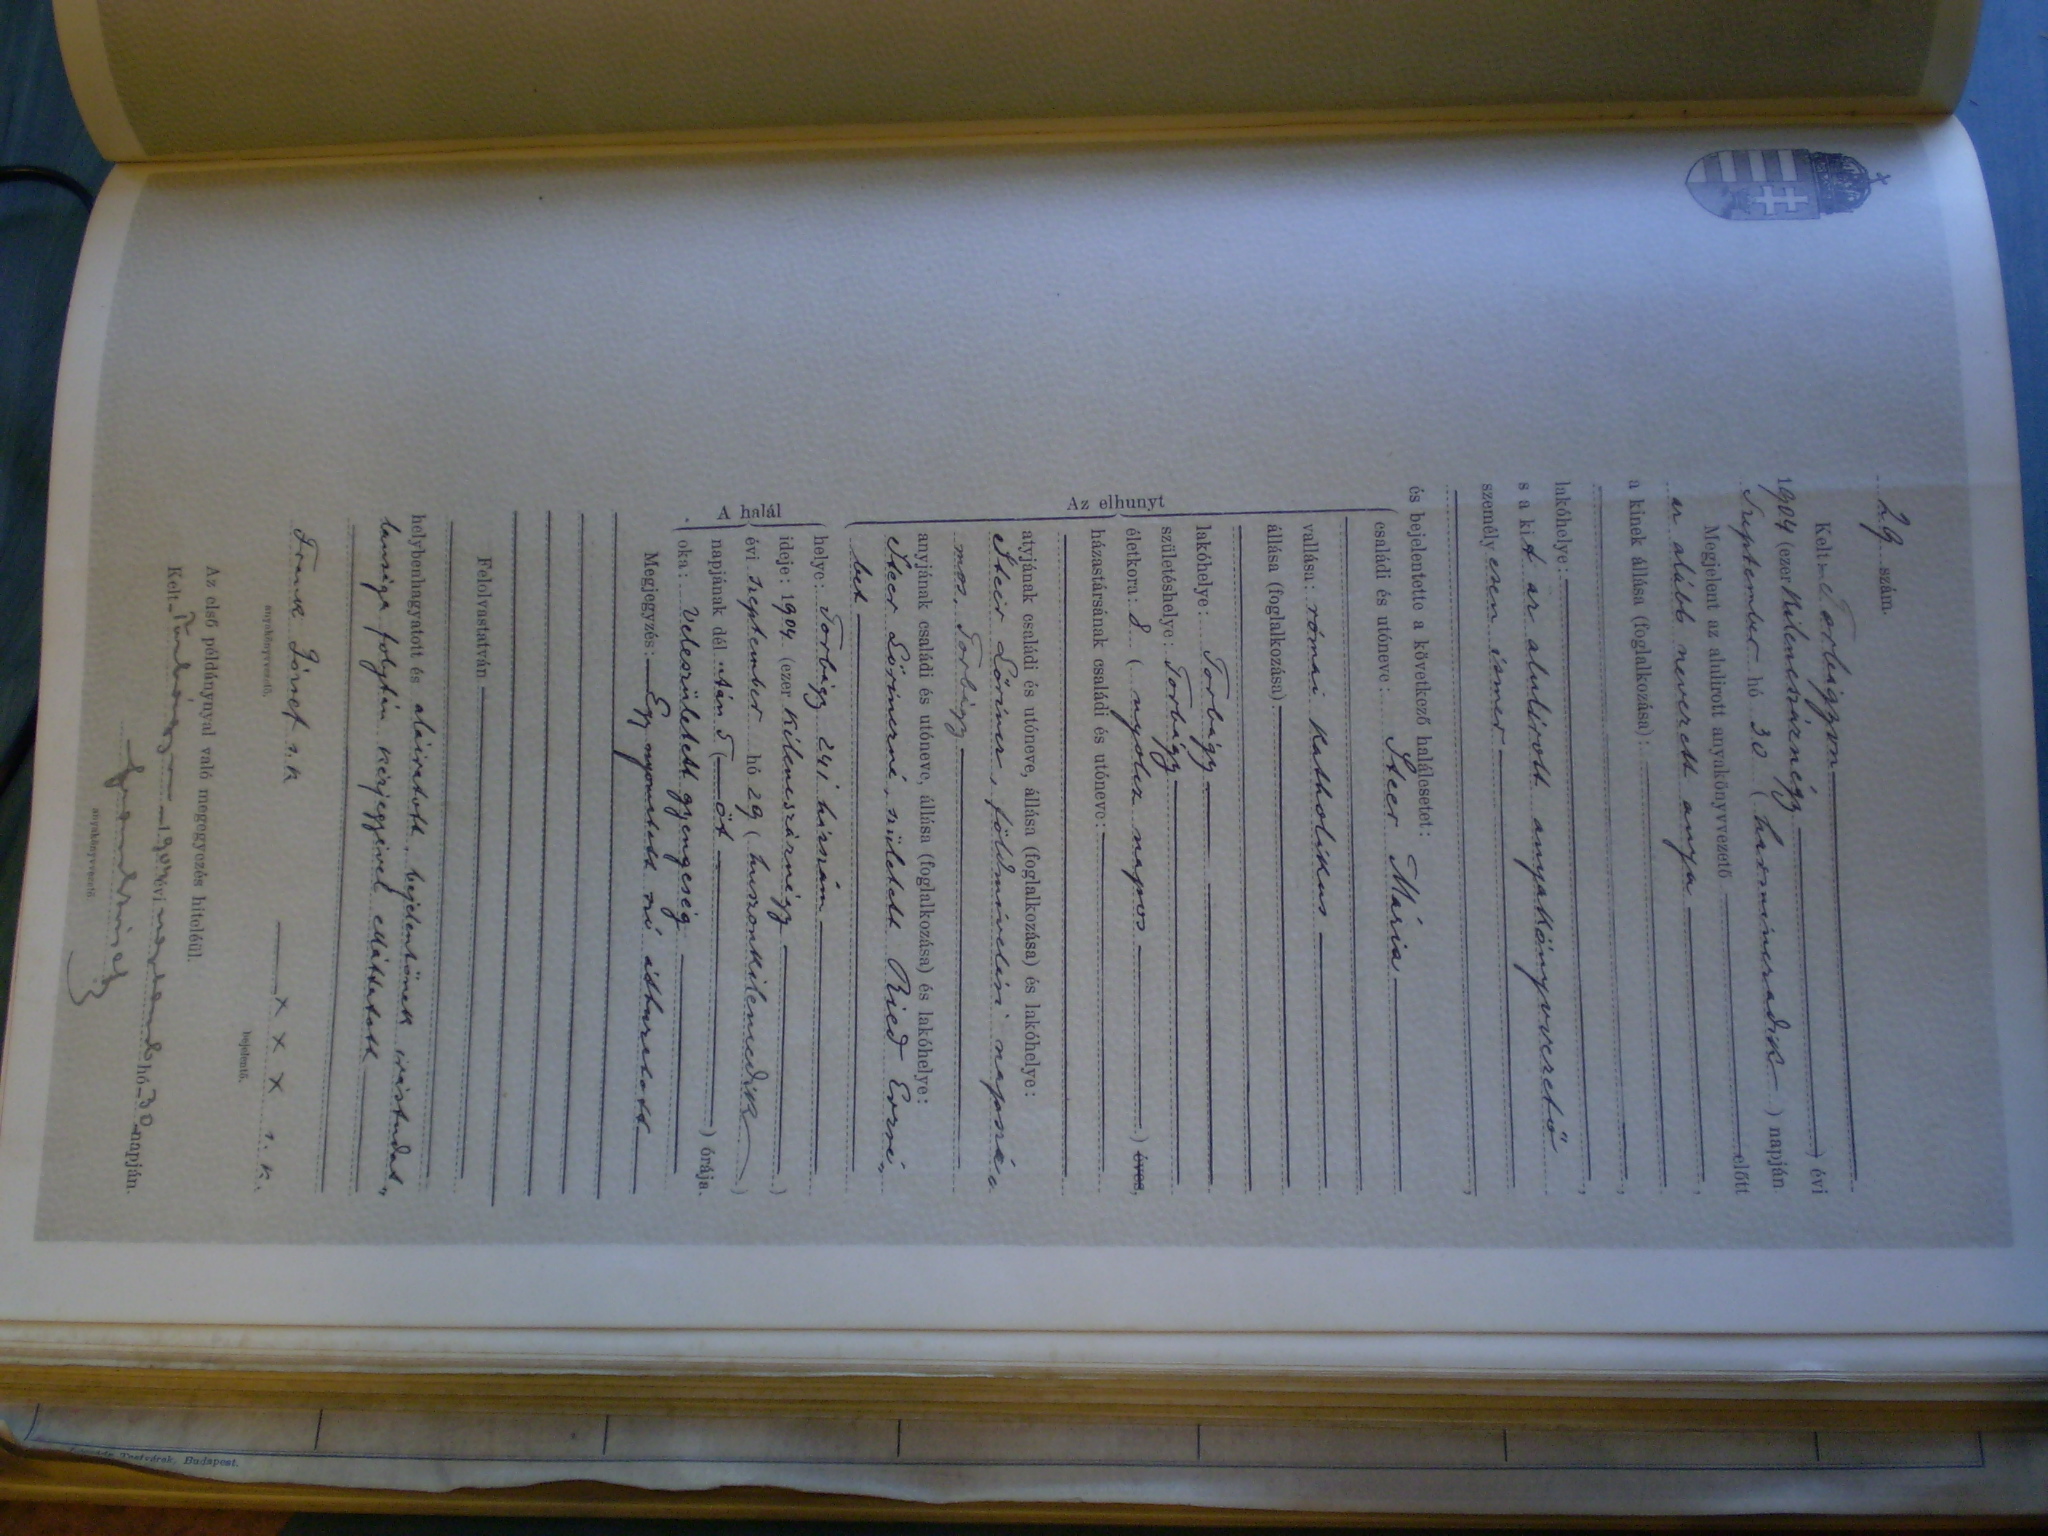 29 szám.
Kelt Torbágyon
1904 (ezer kilencszáznégy) évi
Szeptember hó 30 (harminczadik) napján
Megjelent az alulirott anyakönyvvezető előtt
az alább nevezett anya,
a kinek állása (foglalkozása):
lakóhelye:
s a kit az alulirott anyakönyvvezető
személyesen ismer,
és bejelentette a következő halálesetet:
Az elhunyt
családi és utóneve: Steer Mária
vallása: római katholikus
állása (foglalkozása)
lakóhelye: Torbágy
születéshelye: Torbágy
életkora: 8 (nyolcz napos) éves,
házastársának családi és utóneve:
atyjának családi és utóneve, állása (foglalkozása) és lakóhelye:
Steer Lörincz, földmivelési napszá
mos, Torbágy
anyjának családi és utóneve, állása (foglalkozása) és lakóhelye:
Steer Lörinczné, született Ried Erzsé„
bet
A halál
helye: Torbágy 241 házszám
ideje: 1904 (ezer kilencszáznégy)
évi szeptember hó 29 (huszonkilenczedik)
napjának dél után 5 (öt) órája.
oka: Veleszületett gyengeség
Megjegyzés: Egy nyomtatott szó áthuzatott
Felolvastatván
helybenhagyatott és aláiratott, bejelentőnek irástudat„
lansága folytán kézjegyével elláttatott
Frank József s. k.
x x x s. k.
anyakönyvvezető. bejelentő.
Az első példánynyal való megegyezés hiteléül.
Kelt Torbágy 1904 évi hó 30 napján.
anyakönyvvezető
Testvérek, Budapest.